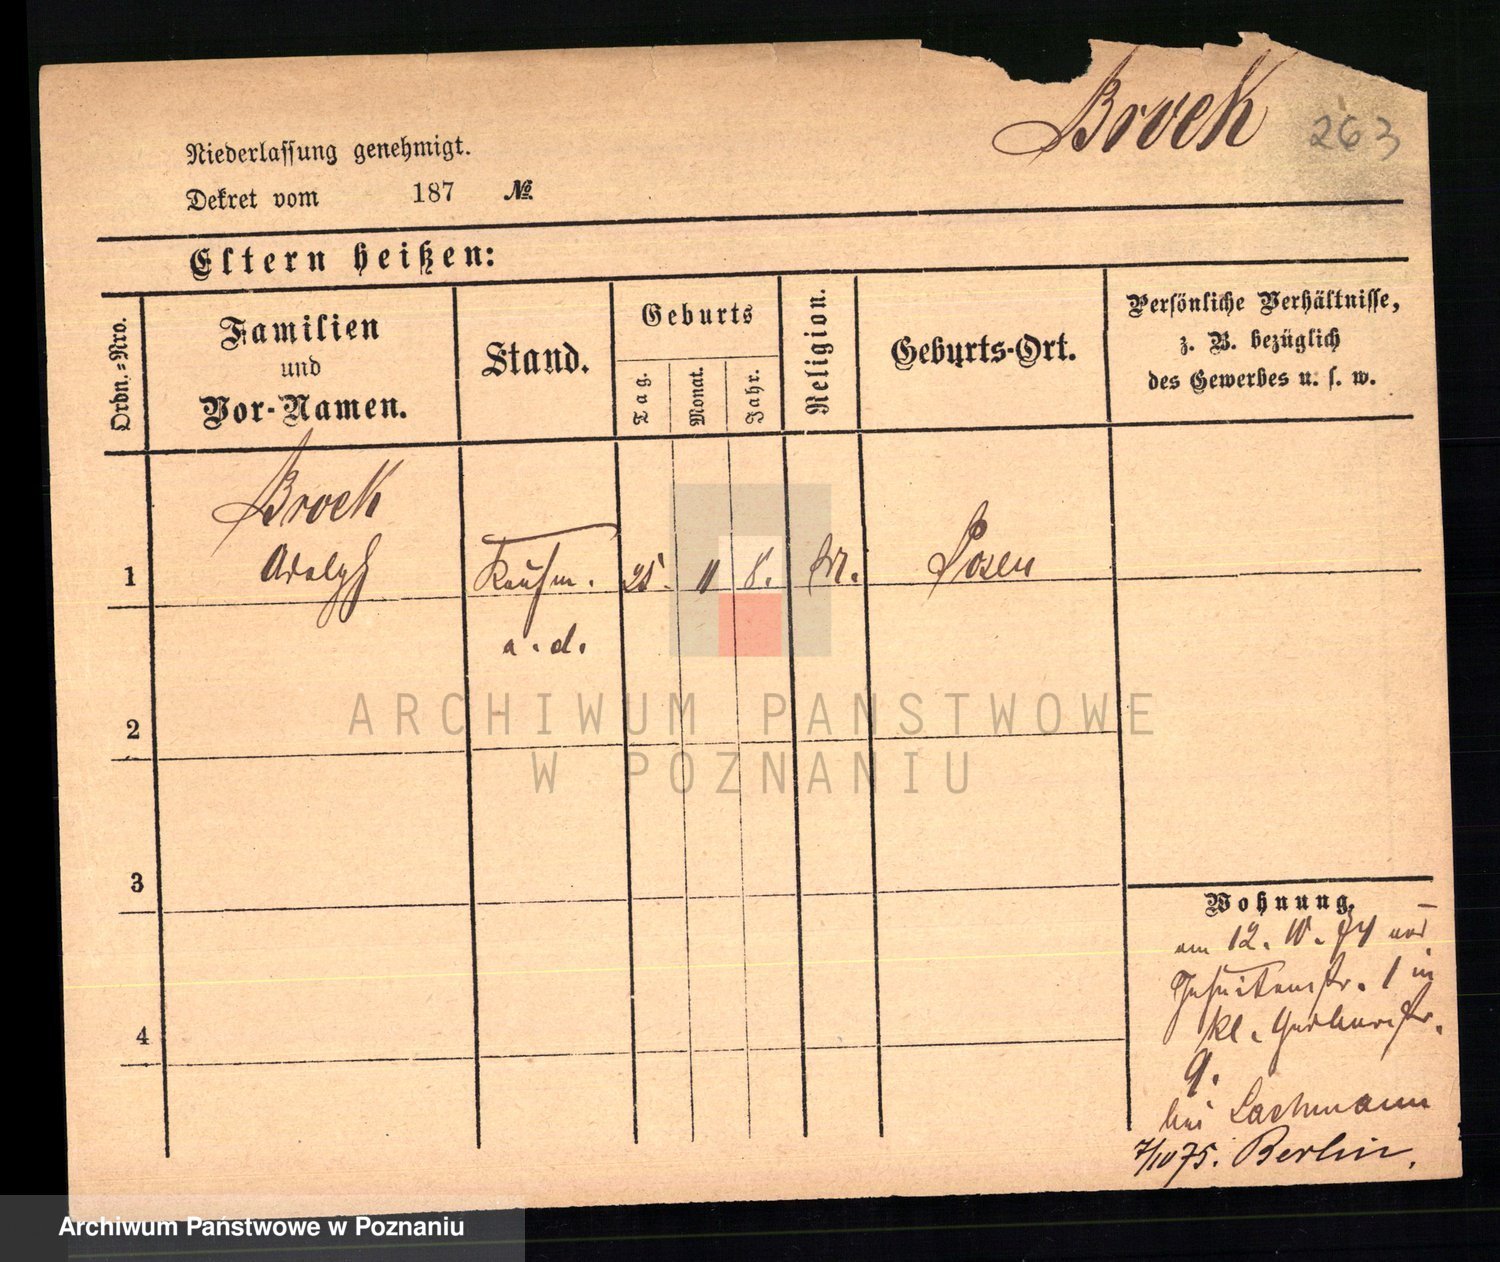 Brock 263
Niederlassung genehmigt.
Dekret vom 187 №
Eltern heißen:
Ordn.-Nro.
Familien
und
Vor-Namen.
Stand.
Geburts
Tag.
Monat.
Jahr.
Religion.
Geburts-Ort.
Persönliche Verhältnisse,
z. B. bezüglich
des Gewerbes u. s. w.
Brock
1 Adolph Kaufm. 25. 11 8. M. Posen
a. d.
2
3
4
Wohnung.
am 12. IV. 74 von
Jesuitenstr. 1 in
kl. Gerberstr.
9.
bei Lachmann
7/IV 75. Berlin.
ARCHIWUM PAŃSTWOWE
W POZNANIU
Archiwum Państwowe w Poznaniu